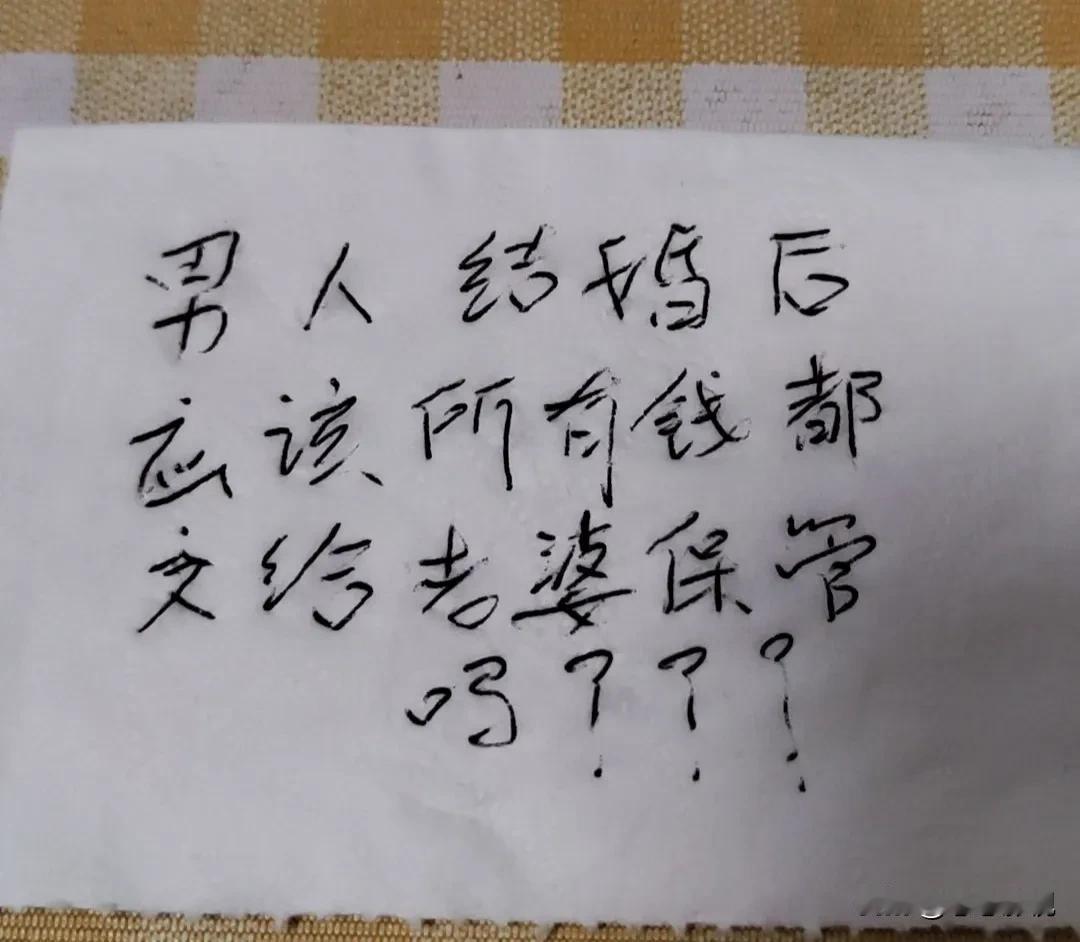 男人结婚后
应该所有钱都
交给老婆保管
吗？？？